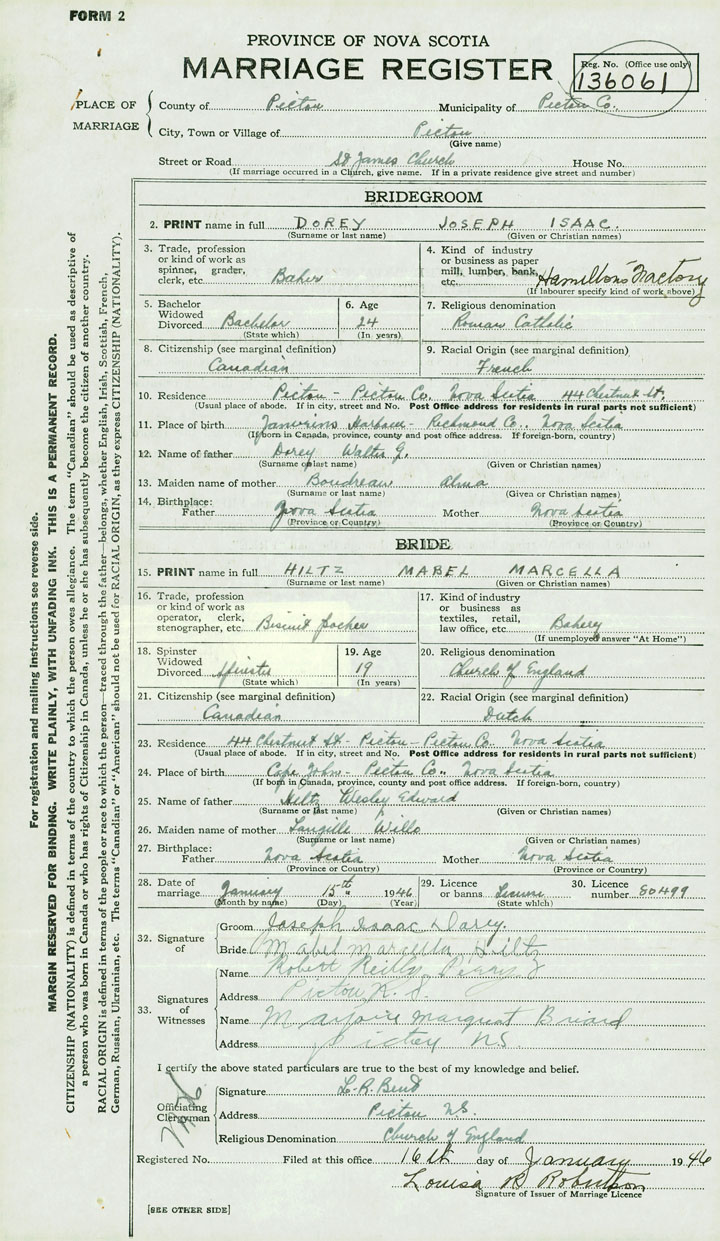 FORM 2
PROVINCE OF NOVA SCOTIA
MARRIAGE REGISTER
Reg. No. (Office use only)
136061
PLACE OF MARRIAGE
County of Pictou Municipality of Pictou Co.
City, Town or Village of Pictou
(Give name)
Street or Road St James Church House No.
(If marriage occurred in a Church, give name. If in a private residence give street and number)
BRIDEGROOM
2. PRINT name in full DOREY JOSEPH ISAAC.
(Surname or last name) (Given or Christian names)
3. Trade, profession or kind of work as spinner, grader, clerk, etc. Baker
4. Kind of industry or business as paper mill, lumber, bank, etc. Hamiltons Factory
(If labourer specify kind of work above)
5. Bachelor Widowed Divorced Bachelor
(State which)
6. Age 24
(In years)
7. Religious denomination Roman Catholic
8. Citizenship (see marginal definition) Canadian
9. Racial Origin (see marginal definition) French
10. Residence Pictou - Pictou Co. Nova Scotia 44 Chestnut St.
(Usual place of abode. If in city, street and No. Post Office address for residents in rural parts not sufficient)
11. Place of birth Harbour - Richmond Co., Nova Scotia
(If born in Canada, province, county and post office address. If foreign-born, country)
12. Name of father Dorey Walter J.
(Surname or last name) (Given or Christian names)
13. Maiden name of mother Boudreau Alma
(Surname or last name) (Given or Christian names)
14. Birthplace: Father Nova Scotia Mother Nova Scotia
(Province or Country) (Province or Country)
BRIDE
15. PRINT name in full HILTZ MABEL MARCELLA
(Surname or last name) (Given or Christian names)
16. Trade, profession or kind of work as operator, clerk, stenographer, etc. Biscuit Packer
17. Kind of industry or business as textiles, retail, law office, etc. Bakery
(If unemployed answer "At Home")
18. Spinster Widowed Divorced Spinster
(State which)
19. Age 19
(In years)
20. Religious denomination Church of England
21. Citizenship (see marginal definition) Canadian
22. Racial Origin (see marginal definition) Dutch
23. Residence 44 Chestnut St - Pictou - Pictou Co. Nova Scotia
(Usual place of abode. If in city, street and No. Post Office address for residents in rural parts not sufficient)
24. Place of birth Cape John - Pictou Co., Nova Scotia
(If born in Canada, province, county and post office address. If foreign-born, country)
25. Name of father Hiltz Wesley Edward
(Surname or last name) (Given or Christian names)
26. Maiden name of mother Langille
(Surname or last name) (Given or Christian names)
27. Birthplace: Father Nova Scotia Mother Nova Scotia
(Province or Country) (Province or Country)
28. Date of marriage January 15th 1946
(Month by name) (Day) (Year)
29. Licence or banns License
(State which)
30. Licence number 80499
32. Signature of
Groom Joseph Isaac Dorey.
Bride Mabel Marcella Hiltz
33. Signatures of Witnesses
Name Robert Reilly
Address Pictou N.S.
Name Marjorie Margaret Briard
Address Pictou N.S.
I certify the above stated particulars are true to the best of my knowledge and belief.
Officiating Clergyman
Signature
Address Pictou N.S.
Religious Denomination Church of England
Registered No. Filed at this office 16th day of January 1946
Louisa B Robertson
Signature of Issuer of Marriage Licence
[SEE OTHER SIDE]
For registration and mailing instructions see reverse side.
MARGIN RESERVED FOR BINDING. WRITE PLAINLY, WITH UNFADING INK. THIS IS A PERMANENT RECORD.
CITIZENSHIP (NATIONALITY) is defined in terms of the country to which the person owes allegiance. The term "Canadian" should be used as descriptive of
a person who was born in Canada or who has rights of Citizenship in Canada, unless he or she has subsequently become the citizen of another country.
RACIAL ORIGIN is defined in terms of the people or race to which the person—traced through the father—belongs, whether English, Irish, Scottish, French,
German, Russian, Ukrainian, etc. The terms "Canadian" or "American" should not be used for RACIAL ORIGIN, as they express CITIZENSHIP (NATIONALITY).